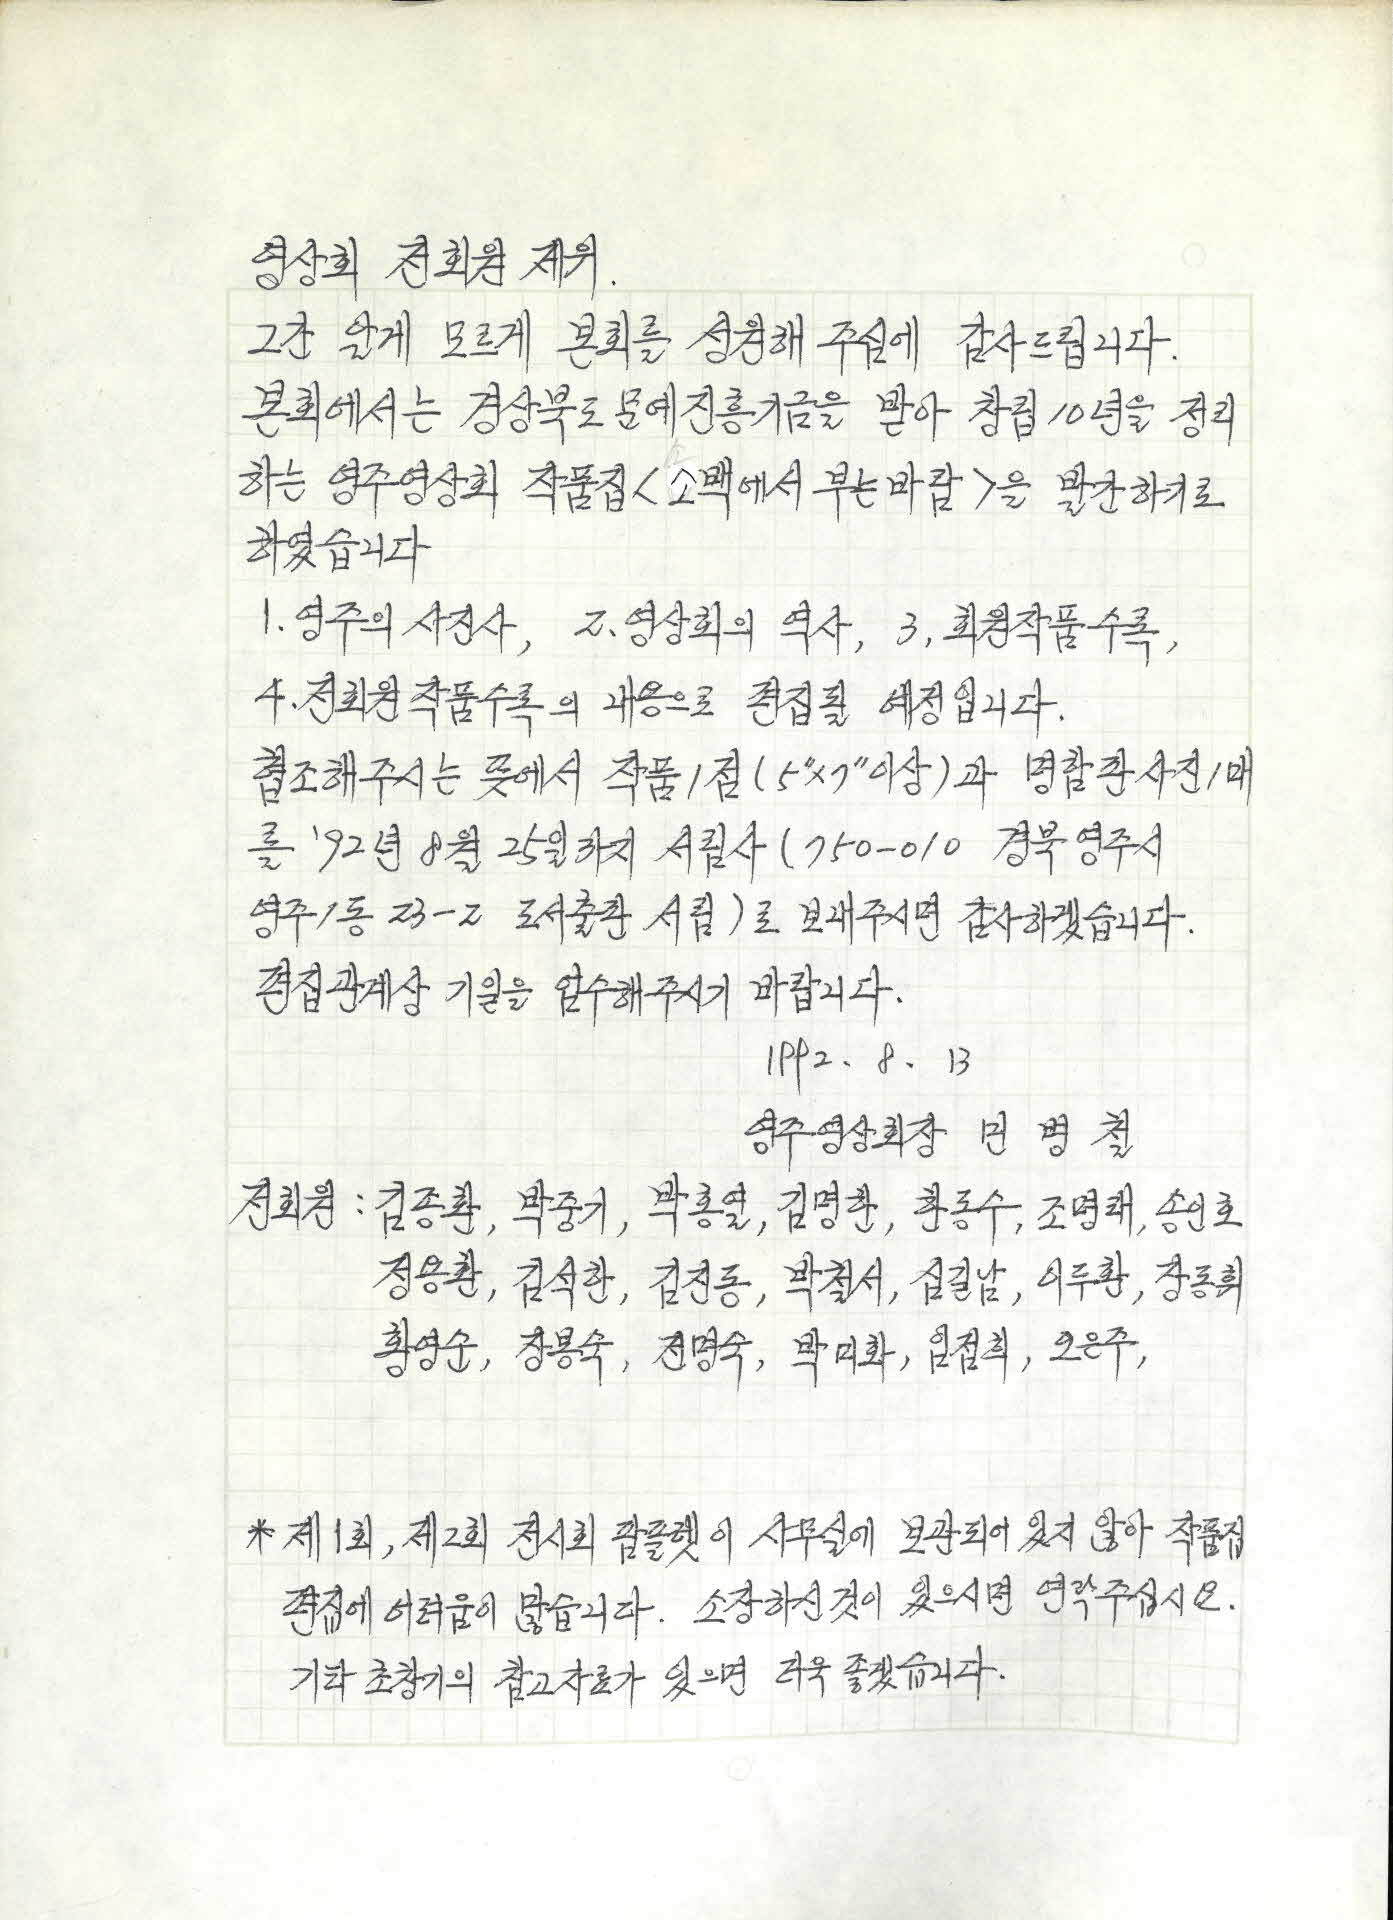 영상회 전회원 제위.
그간 알게 모르게 본회를 성원해 주심에 감사드립니다.
본회에서는 경상북도 문예진흥기금을 받아 창립 10년을 정리
하는 영주영상회 작품집 <소백에서 부는 바람>을 발간하기로
하였습니다
1. 영주의 사진사, 2. 영상회의 역사, 3. 회원작품수록,
4. 전회원작품수록의 내용으로 편집될 예정입니다.
협조해주시는 뜻에서 작품 1점(5"x7"이상)과 명함판사진 1매
를 '92년 8월 25일까지 서림사(750-010 경북 영주시
영주1동 23-2 도서출판 서림)로 보내주시면 감사하겠습니다.
편집관계상 기일을 엄수해주시기 바랍니다.
1992. 8. 13
영주영상회장 민 병 철
전회원: 김종환, 박중기, 박홍열, 김명한, 황동수, 조명래, 송인호
정용환, 김석한, 김진동, 박철서, 심길남, 이두환, 장동휘
황영순, 장봉숙, 전명숙, 박미화, 임점희, 오은주,
* 제1회, 제2회 전시회 팜플렛이 사무실에 보관되어 있지 않아 작품집
편집에 어려움이 많습니다. 소장하신것이 있으시면 연락주십시오.
기타 초창기의 참고자료가 있으면 더욱 좋겠습니다.